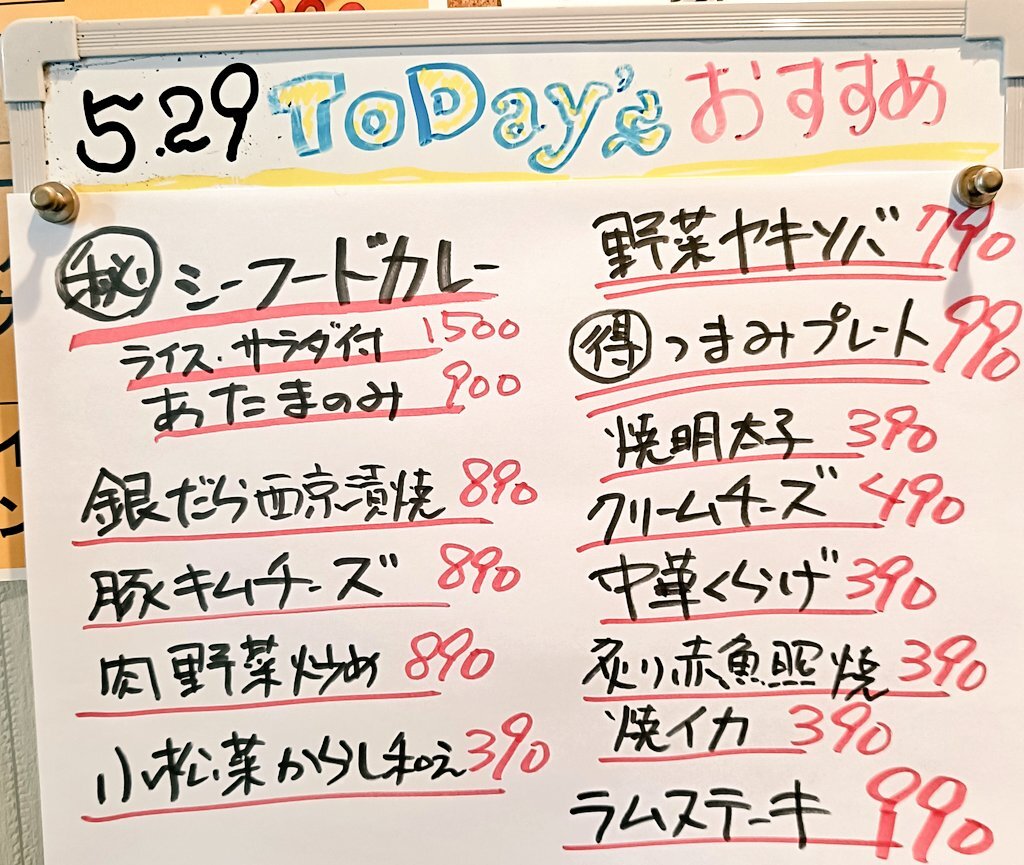 5.29 ToDay's おすすめ
㊙ シーフードカレー
ライス・サラダ付 1500
あたまのみ 900
銀だら西京漬焼 890
豚キムチーズ 890
肉野菜炒め 890
小松菜からし和え 390
野菜ヤキソバ 790
得 つまみプレート 990
焼明太子 390
クリームチーズ 490
中華くらげ 390
炙り赤魚照焼 390
焼イカ 390
ラムステーキ 990